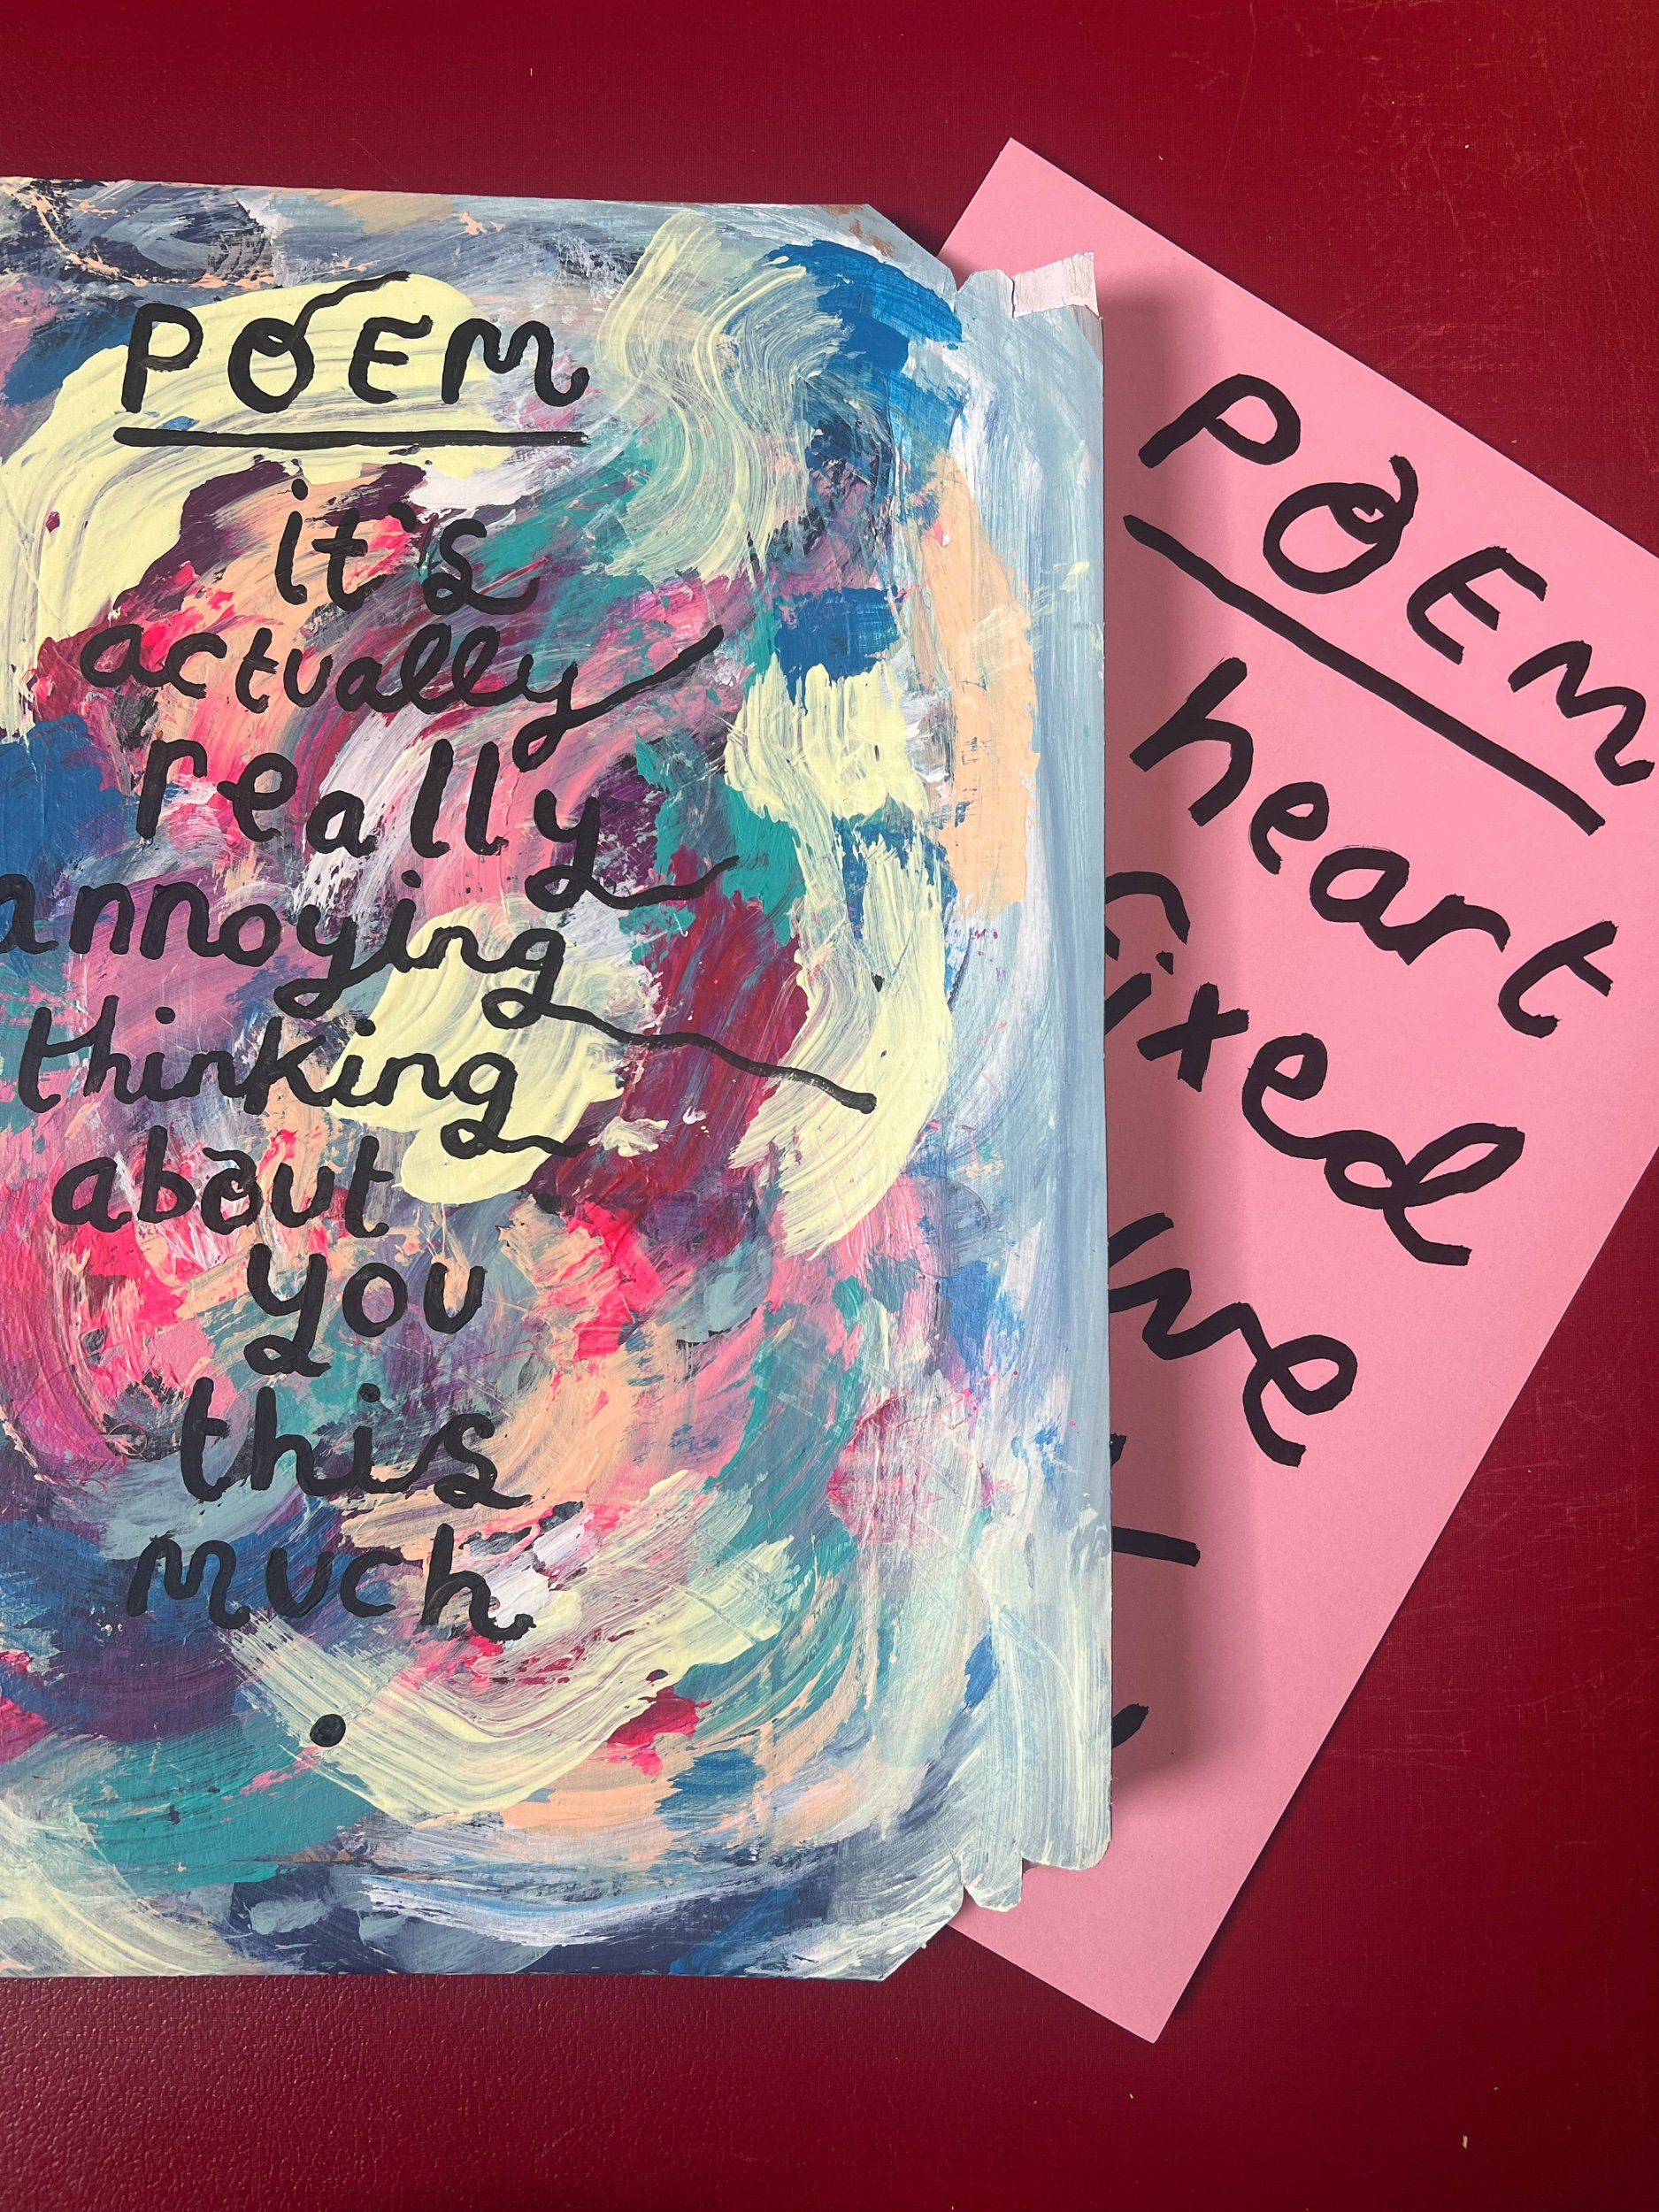 POEM
it's
actually
really
annoying
thinking
about
you
this
much
.
POEM
heart
fixed
me